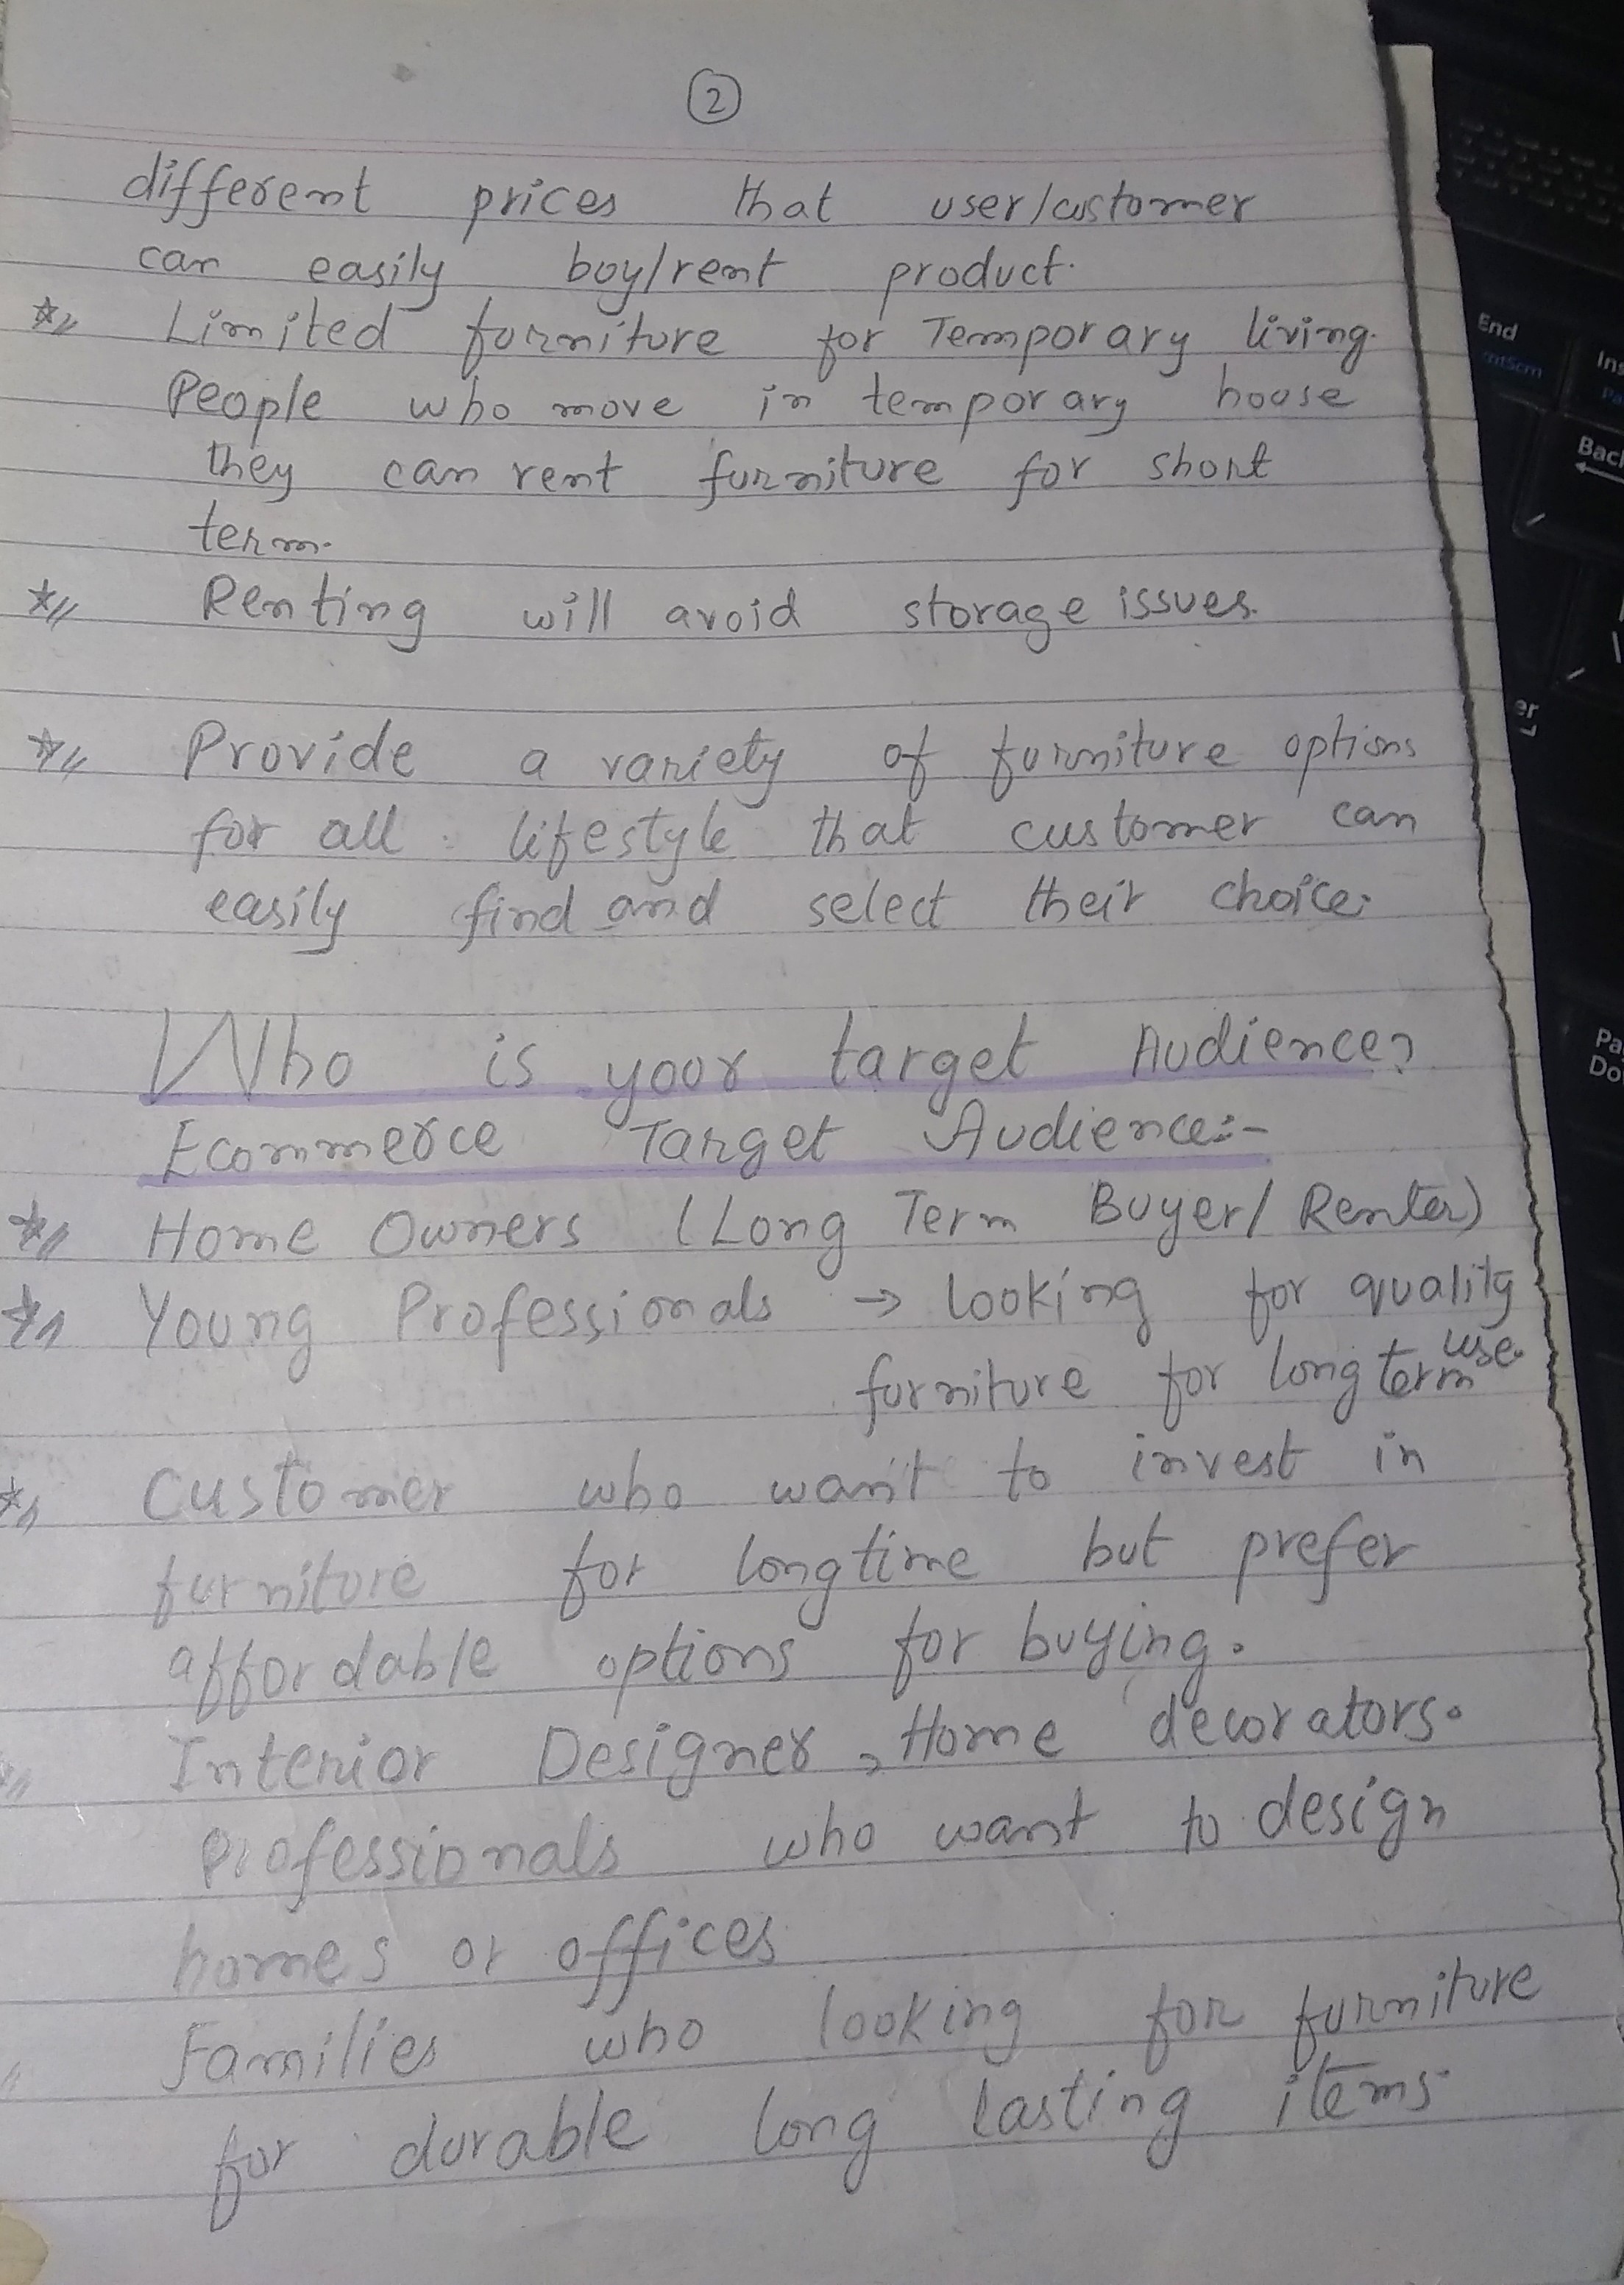 2
different prices that user/customer
can easily boy/rent product.
Limited furniture for Temporary living.
People who move in temporary house
they can rent furniture for short
term.
Renting will avoid storage issues.
Provide a variety of furniture options
for all lifestyle that customer can
easily find and select their choice.
Who is your target Audience?
Ecommerce Target Audience:-
Home Owners (Long Term Buyer/Renter)
Young Professionals → looking for quality
furniture for long term use.
Customer who want to invest in
furniture for longtime but prefer
affordable options for buying.
Interior Designer, Home decorators.
Professionals who want to design
homes or offices
Families who looking for furniture
for durable long lasting items.
End
PrtScn
Ins
Pa
Back
er
Pa
Do